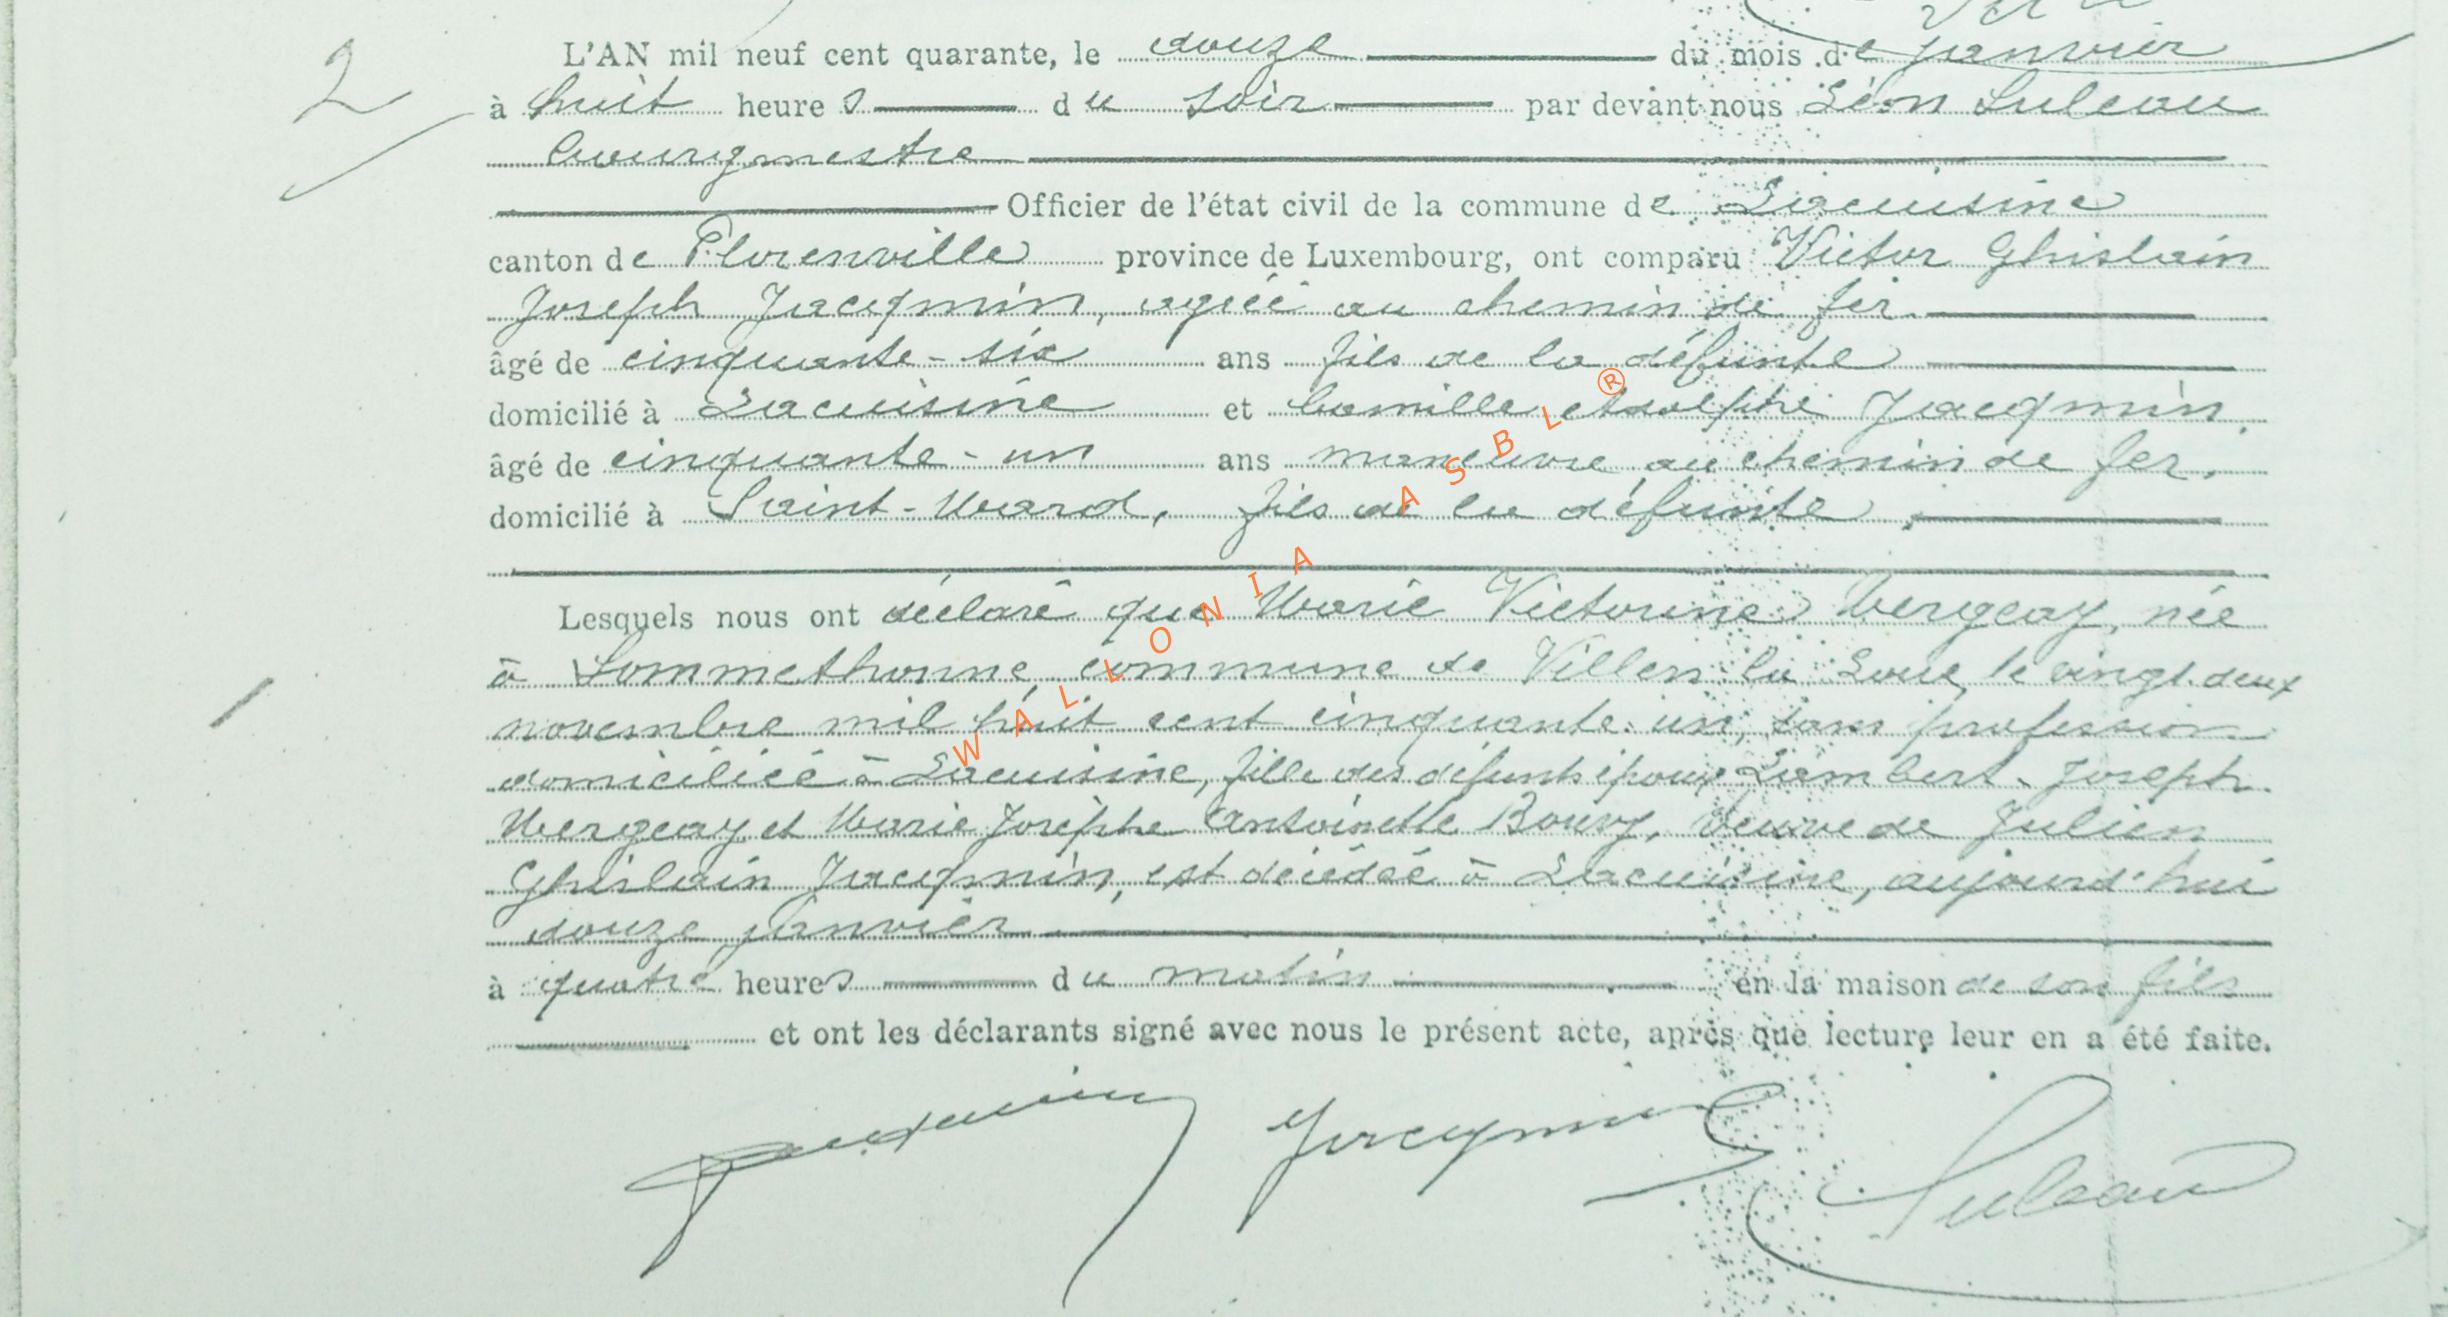 2
L'AN mil neuf cent quarante, le douze du mois de janvier
à huit heures du soir par devant nous Léon Suleau
bourgmestre
Officier de l'état civil de la commune de Lacuisine
canton de Florenville province de Luxembourg, ont comparu Victor Ghislain
Joseph Jacqmin, agréé au chemin de fer
âgé de cinquante-six ans fils de la défunte
domicilié à Lacuisine et Camille Adolphe Jacqmin
âgé de cinquante-un ans manœuvre au chemin de fer,
domicilié à Saint-Mard, fils de la défunte,
Lesquels nous ont déclaré que Marie Victorine Mergeay, née
à Sommethonne, commune de Villers la Loue, le vingt-deux
novembre mil huit cent cinquante-un, sans profession
domiciliée à Lacuisine, fille des défunts époux Lambert-Joseph
Mergeay et Marie Josèphe Antoinette Bouvy, veuve de Julien
Ghislain Jacqmin, est décédée à Lacuisine, aujourd'hui
douze janvier
à quatre heures du matin en la maison de son fils
et ont les déclarants signé avec nous le présent acte, après que lecture leur en a été faite.
Jacqmin Jacqmin Suleau
WALLONIA ASBL ®